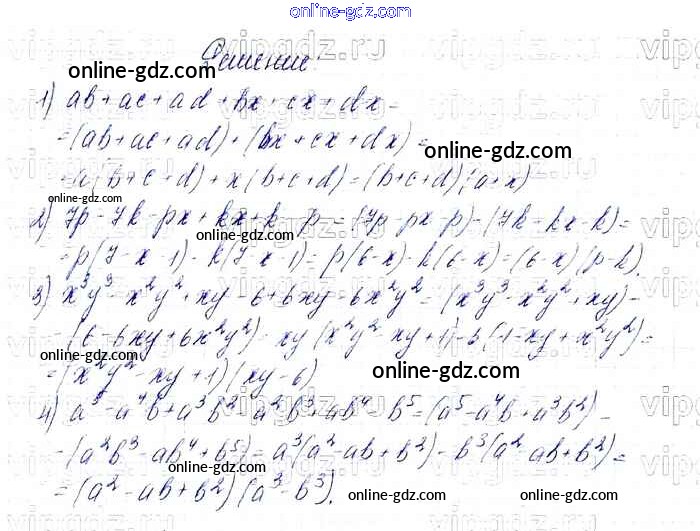 online-gdz.com
Решение
vipgdz.ru
online-gdz.com
1) ab + ac + ad + bx + cx + dx =
= (ab + ac + ad) + (bx + cx + dx) =
online-gdz.com
= a(b + c + d) + x(b + c + d) = (b + c + d)(a + x)
online-gdz.com
2) 7p - 7k - px + kx + k - p = (7p - px - p) - (7k - kx - k) =
online-gdz.com
= p(7 - x - 1) - k(7 - x - 1) = p(6 - x) - k(6 - x) = (6 - x)(p - k)
3) x³y³ - x²y² + xy - 6 + 6xy - 6x²y² = (x³y³ - x²y² + xy) -
- (6 - 6xy + 6x²y²) = xy(x²y² - xy + 1) - (1 - xy + x²y²) =
online-gdz.com
= (x²y² - xy + 1)(xy - 6)
online-gdz.com
4) a⁵ - a⁴b + a³b² - a²b³ + ab⁴ - b⁵ = (a⁵ - a⁴b + a³b²) -
- (a²b³ - ab⁴ + b⁵) = a³(a² - ab + b²) - b³(a² - ab + b²) =
online-gdz.com
= (a² - ab + b²)(a³ - b³).
online-gdz.com
online-gdz.com